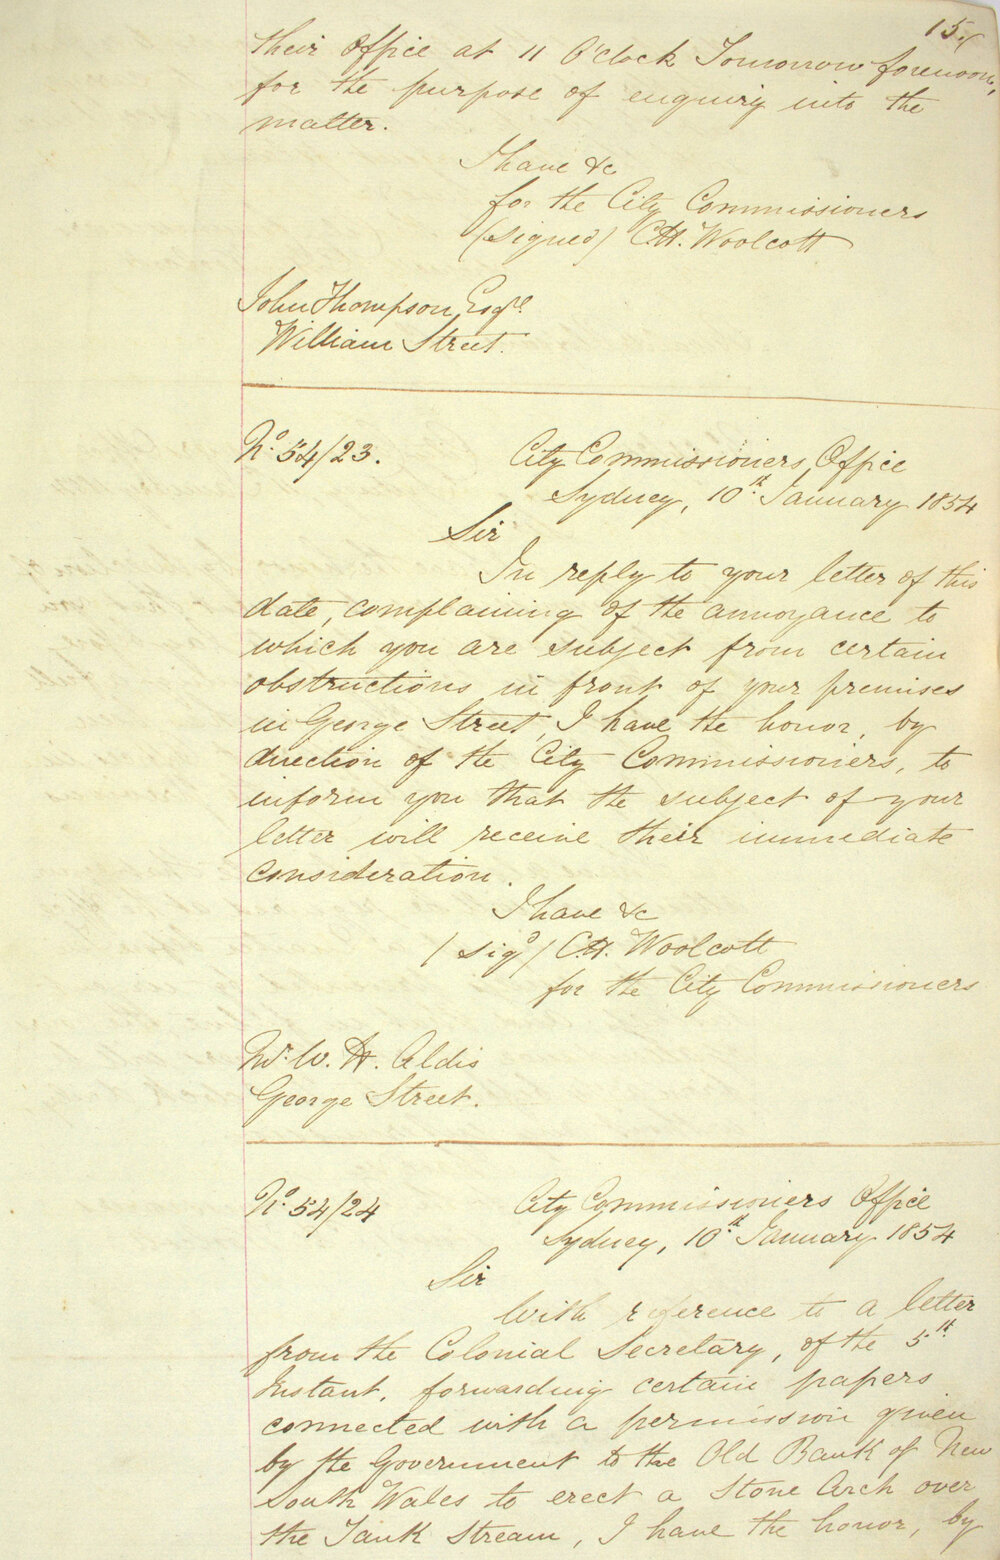 15.
their Office at 11 O'clock Tomorrow forenoon,
for the purpose of enquiry into the
matter.
I have &c
for the City Commissioners
(signed) C.H. Woolcott
John Thompson Esqre.
William Street.
No. 54/23.
City Commissioners Office
Sydney, 10th January 1854
Sir
In reply to your letter of this
date, complaining of the annoyance to
which you are subject from certain
obstructions in front of your premises
in George Street, I have the honor, by
direction of the City Commissioners, to
inform you that the subject of your
letter will receive their immediate
consideration.
I have &c
(sigd) C.H. Woolcott
for the City Commissioners
Mr. W. H. Aldis
George Street.
No. 54/24
City Commissioners Office
Sydney, 10th January 1854
Sir
With reference to a letter
from the Colonial Secretary, of the 5th
Instant, forwarding certain papers
connected with a permission given
by the Government to the Old Bank of New
South Wales to erect a Stone Arch over
the Tank Stream, I have the honor, by